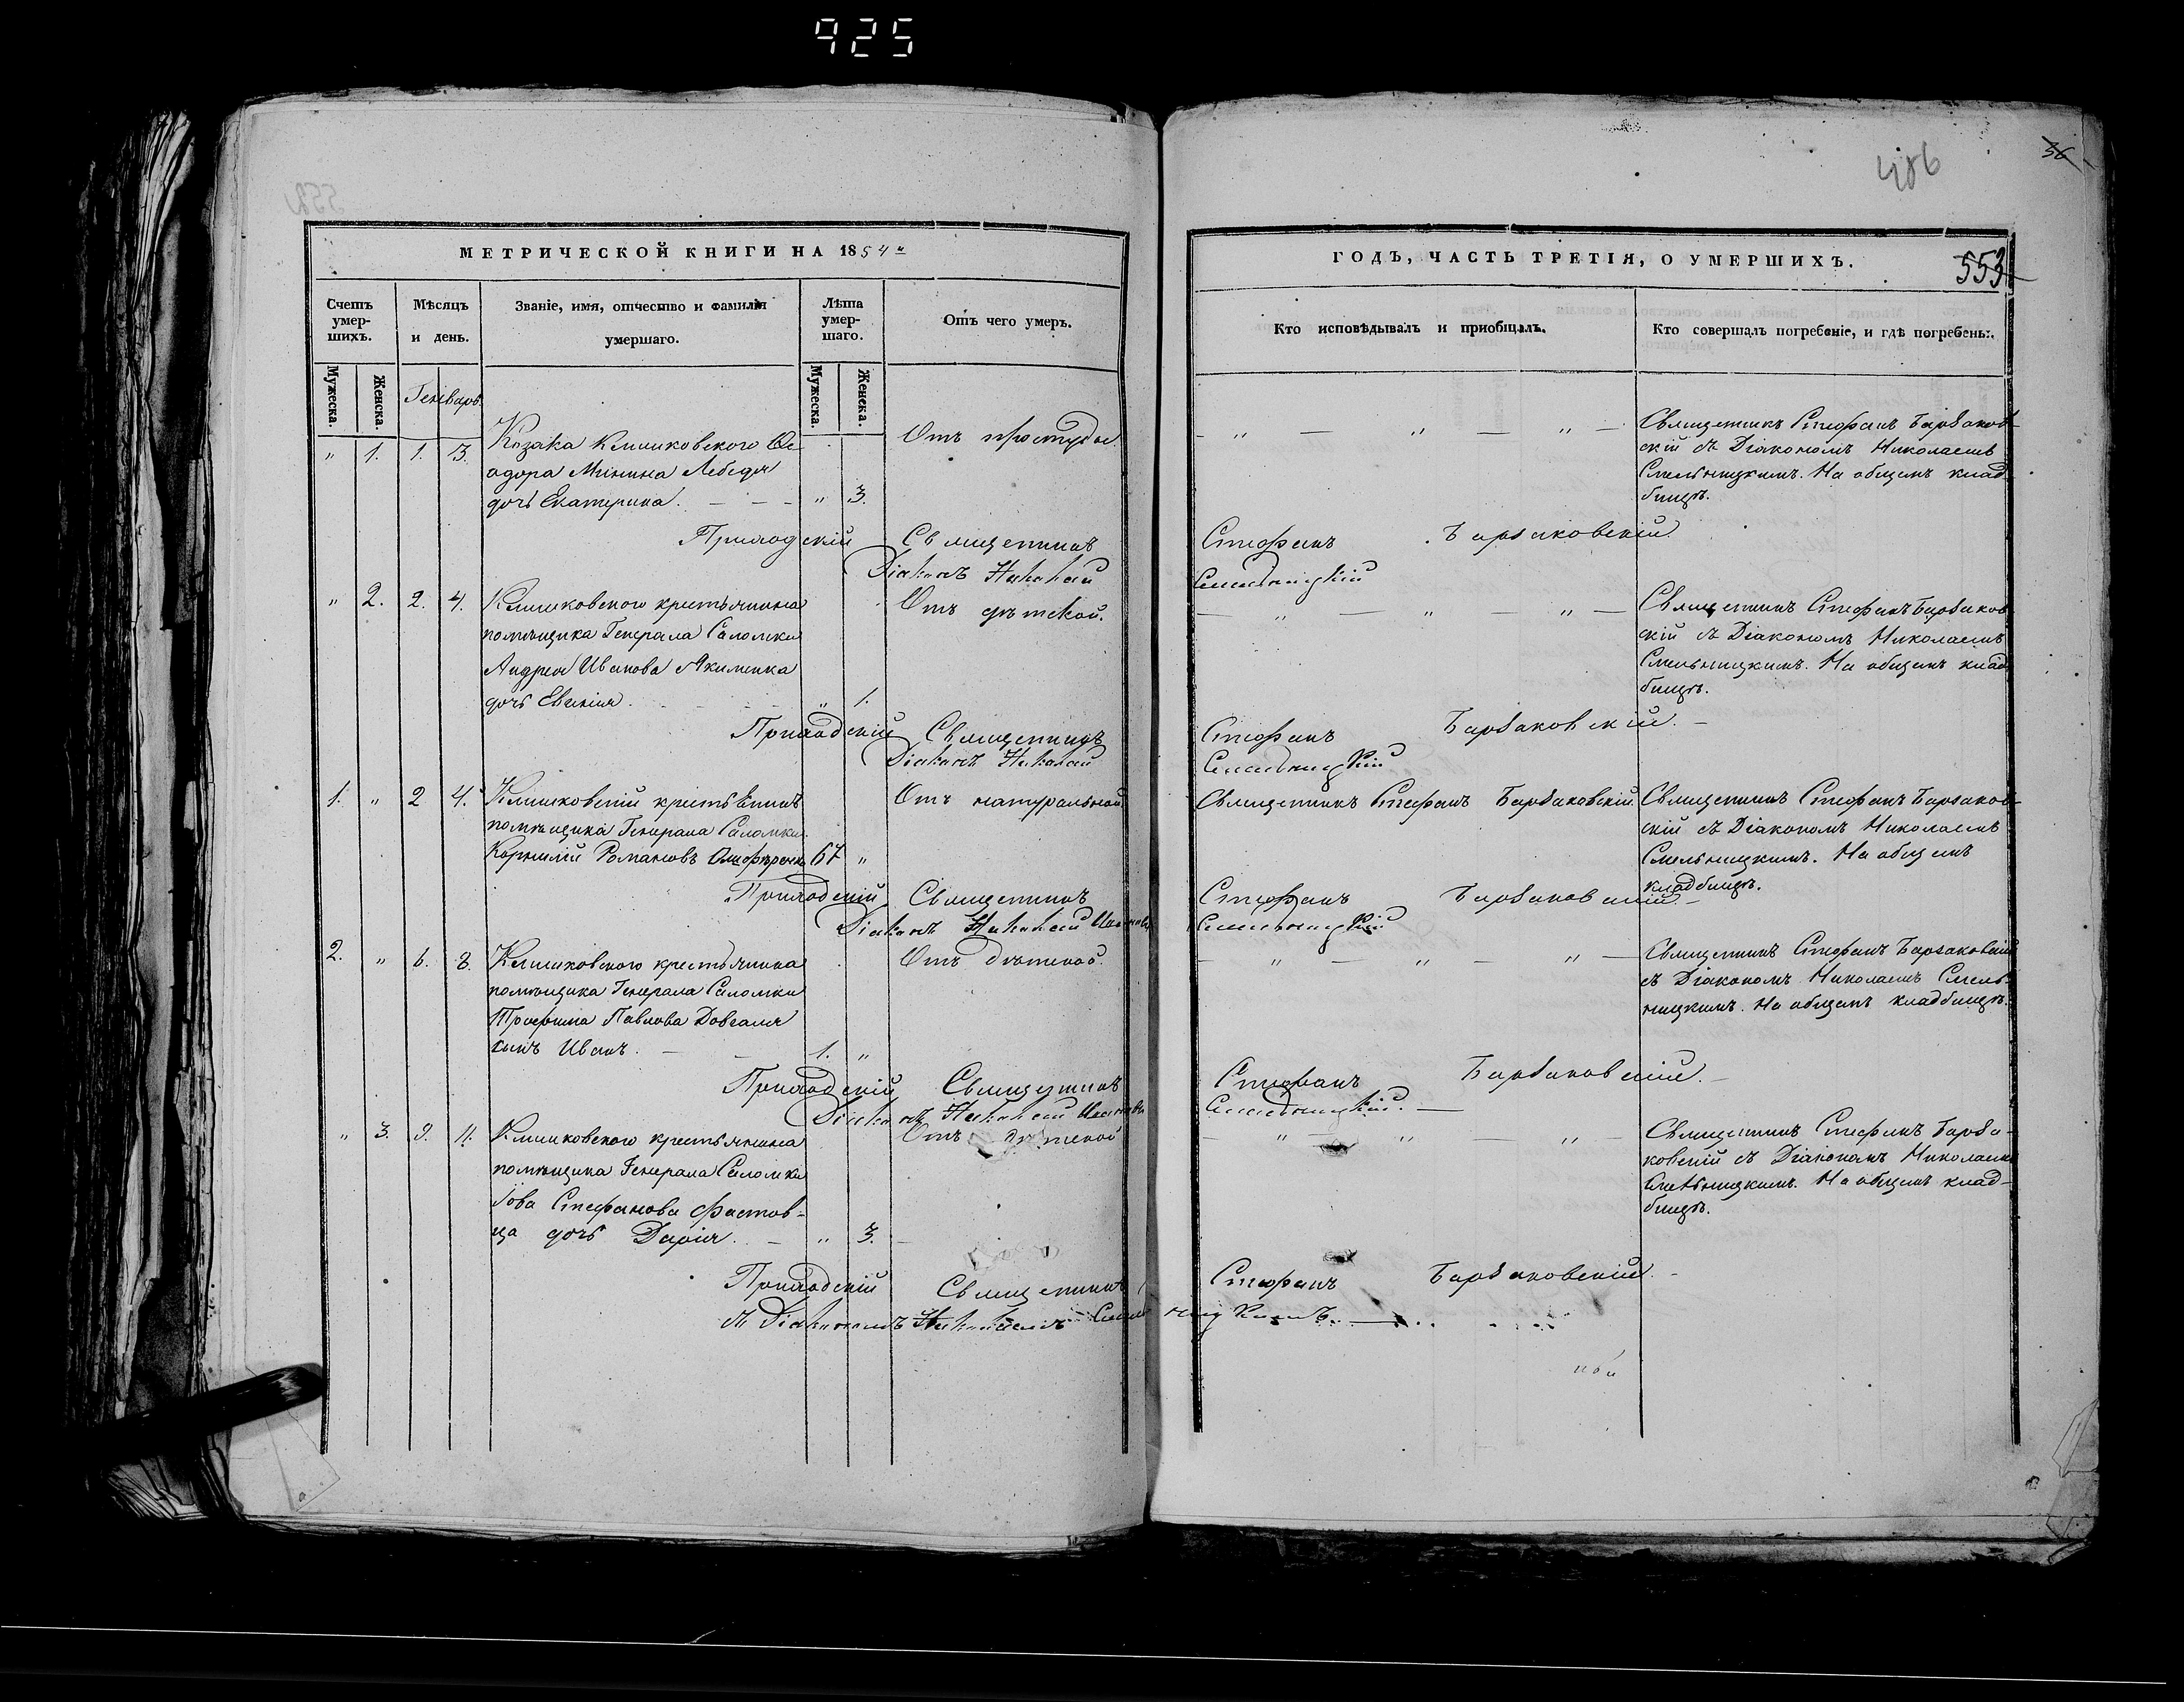 925
486
36
МЕТРИЧЕСКОЙ КНИГИ НА 1854
ГОДЪ, ЧАСТЬ ТРЕТІЯ, О УМЕРШИХЪ.
553
Счетъ умер-шихъ.
Мѣсяцъ и день.
Званіе, имя, отчество и фамилія умершаго.
Лѣта умер-шаго.
Отъ чего умеръ.
Кто исповѣдывалъ и приобщалъ.
Кто совершалъ погребеніе, и гдѣ погребены.
Мужеска.
Женска.
Генваръ.
Мужеска.
Женска.
" 1. 1. 3. Козака Климковского Ѳе-
одора Минина Лебедя
дочь Екатерина. — — — " 3.
Отъ простуды.
— " — " — " —
Священникъ Стефанъ Барзаков-
скій съ Діакономъ Николаемъ
Смельницкимъ. На общемъ клад-
бищѣ.
Приходскій Священникъ Стефанъ Барзаковскій
Діаконъ Николай Смельницкій
" 2. 2. 4. Климковского крестьянина
помѣщика Генерала Саломки
Андрея Иванова Якименка
дочь Евгенія. " 1.
Отъ дѣтской.
— " — " " —
Священникъ Стефанъ Барзаков-
скій съ Діакономъ Николаемъ
Смельницкимъ. На общемъ клад-
бищѣ.
Приходскій Священникъ Стефанъ Барзаковскій. —
Діаконъ Николай Смельницкій
1. " 2 4. Климковскій крестьянинъ
помѣщика Генерала Саломки
Корнилій Романовъ 67 "
Отъ натуральной.
Священникъ Стефанъ Барзаковскій.
Священникъ Стефанъ Барзаков-
скій съ Діакономъ Николаемъ
Смельницкимъ. На общемъ
кладбищѣ.
Приходскій Священникъ Стефанъ Барзаковскій —
Діаконъ Николай Смельницкій
2. " 6. 8. Климковского крестьянина
помѣщика Генерала Саломки
Трофима Павлова Довгаля
сынъ Иванъ. — — 1. "
Отъ дѣтской.
— " — " — " —
Священникъ Стефанъ Барзаковскій
съ Діакономъ Николаемъ Смель-
ницкимъ. На общемъ кладбищѣ.
Приходскій Священникъ Стефанъ Барзаковскій. —
Діаконъ Николай Смельницкій. —
" 3. 9. 11. Климковского крестьянина
помѣщика Генерала Саломки
Іова Стефанова Фастов-
ца дочь Дарія. — " 3. —
Отъ дѣтской
— " — " — " —
Священникъ Стефанъ Барза-
ковскій съ Діакономъ Николаемъ
Смельницкимъ. На общемъ клад-
бищѣ.
Приходскій Священникъ Стефанъ Барзаковскій. —
съ Діакономъ Николаемъ Смельницкимъ.